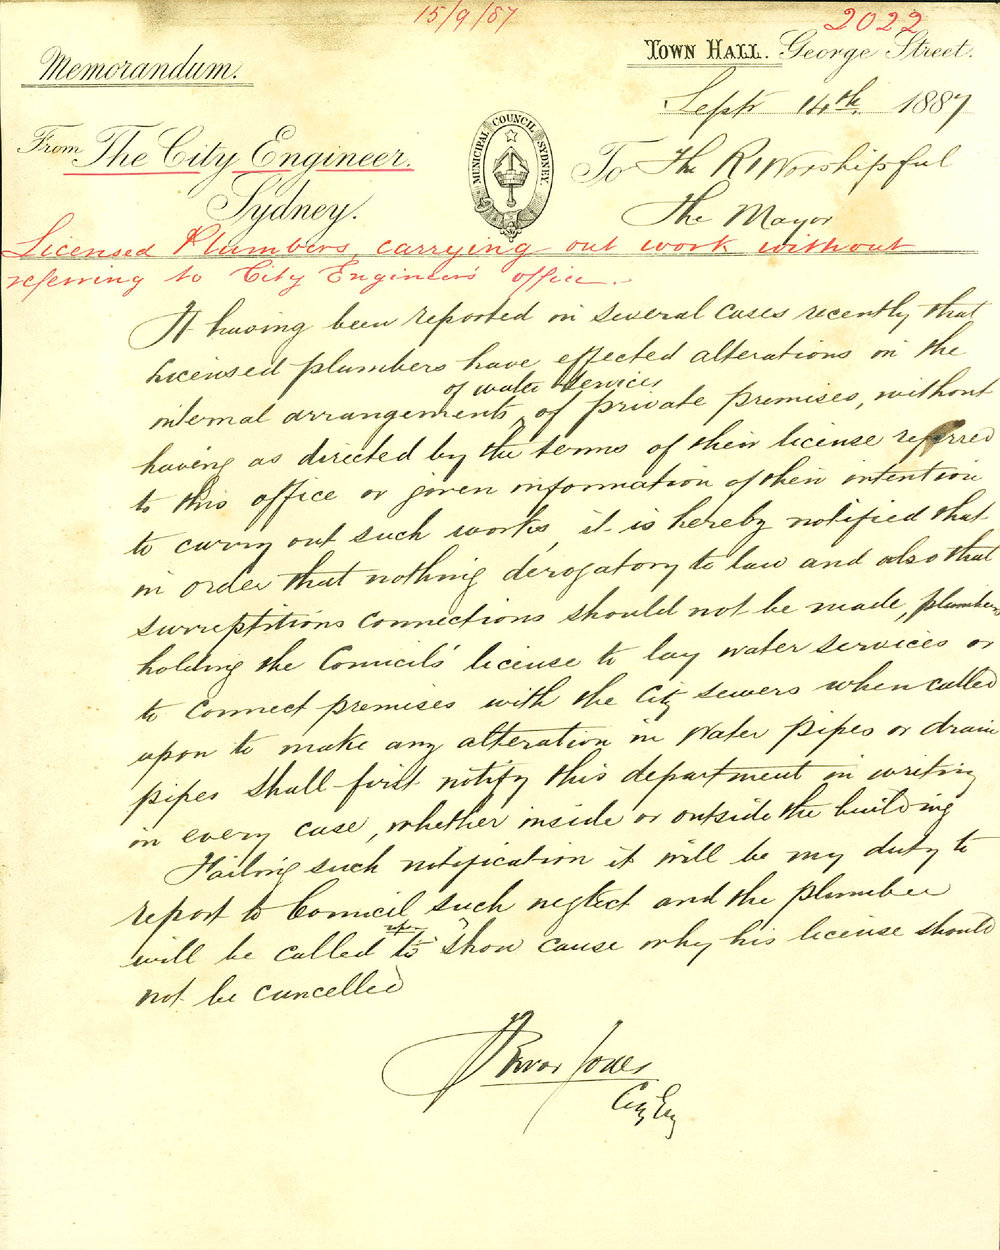 15/9/87
2022
Memorandum.
Town Hall. George Street.
Septr 14th. 1887
From The City Engineer.
Sydney.
MUNICIPAL COUNCIL SYDNEY.
To The Rt Worshipful
The Mayor
Licensed Plumbers carrying out work without
referring to City Engineers office.
It having been reported in several cases recently that
licensed plumbers have effected alterations in the
of water services
internal arrangements ^ of private premises, without
having as directed by the terms of their license referred
to this office or given information of their intention
to carry out such works, it is hereby notified that
in order that nothing derogatory to law and also that
surreptitious connections should not be made, plumbers
holding the Council's license to lay water services or
to connect premises with the City sewers when called
upon to make any alteration in water pipes or drain
pipes shall first notify this department in writing
in every case, whether inside or outside the building
Failing such notification it will be my duty to
report to Council such neglect and the plumber
upon
will be called to ^ show cause why his license should
not be cancelled
Trevor Jones
City Eng